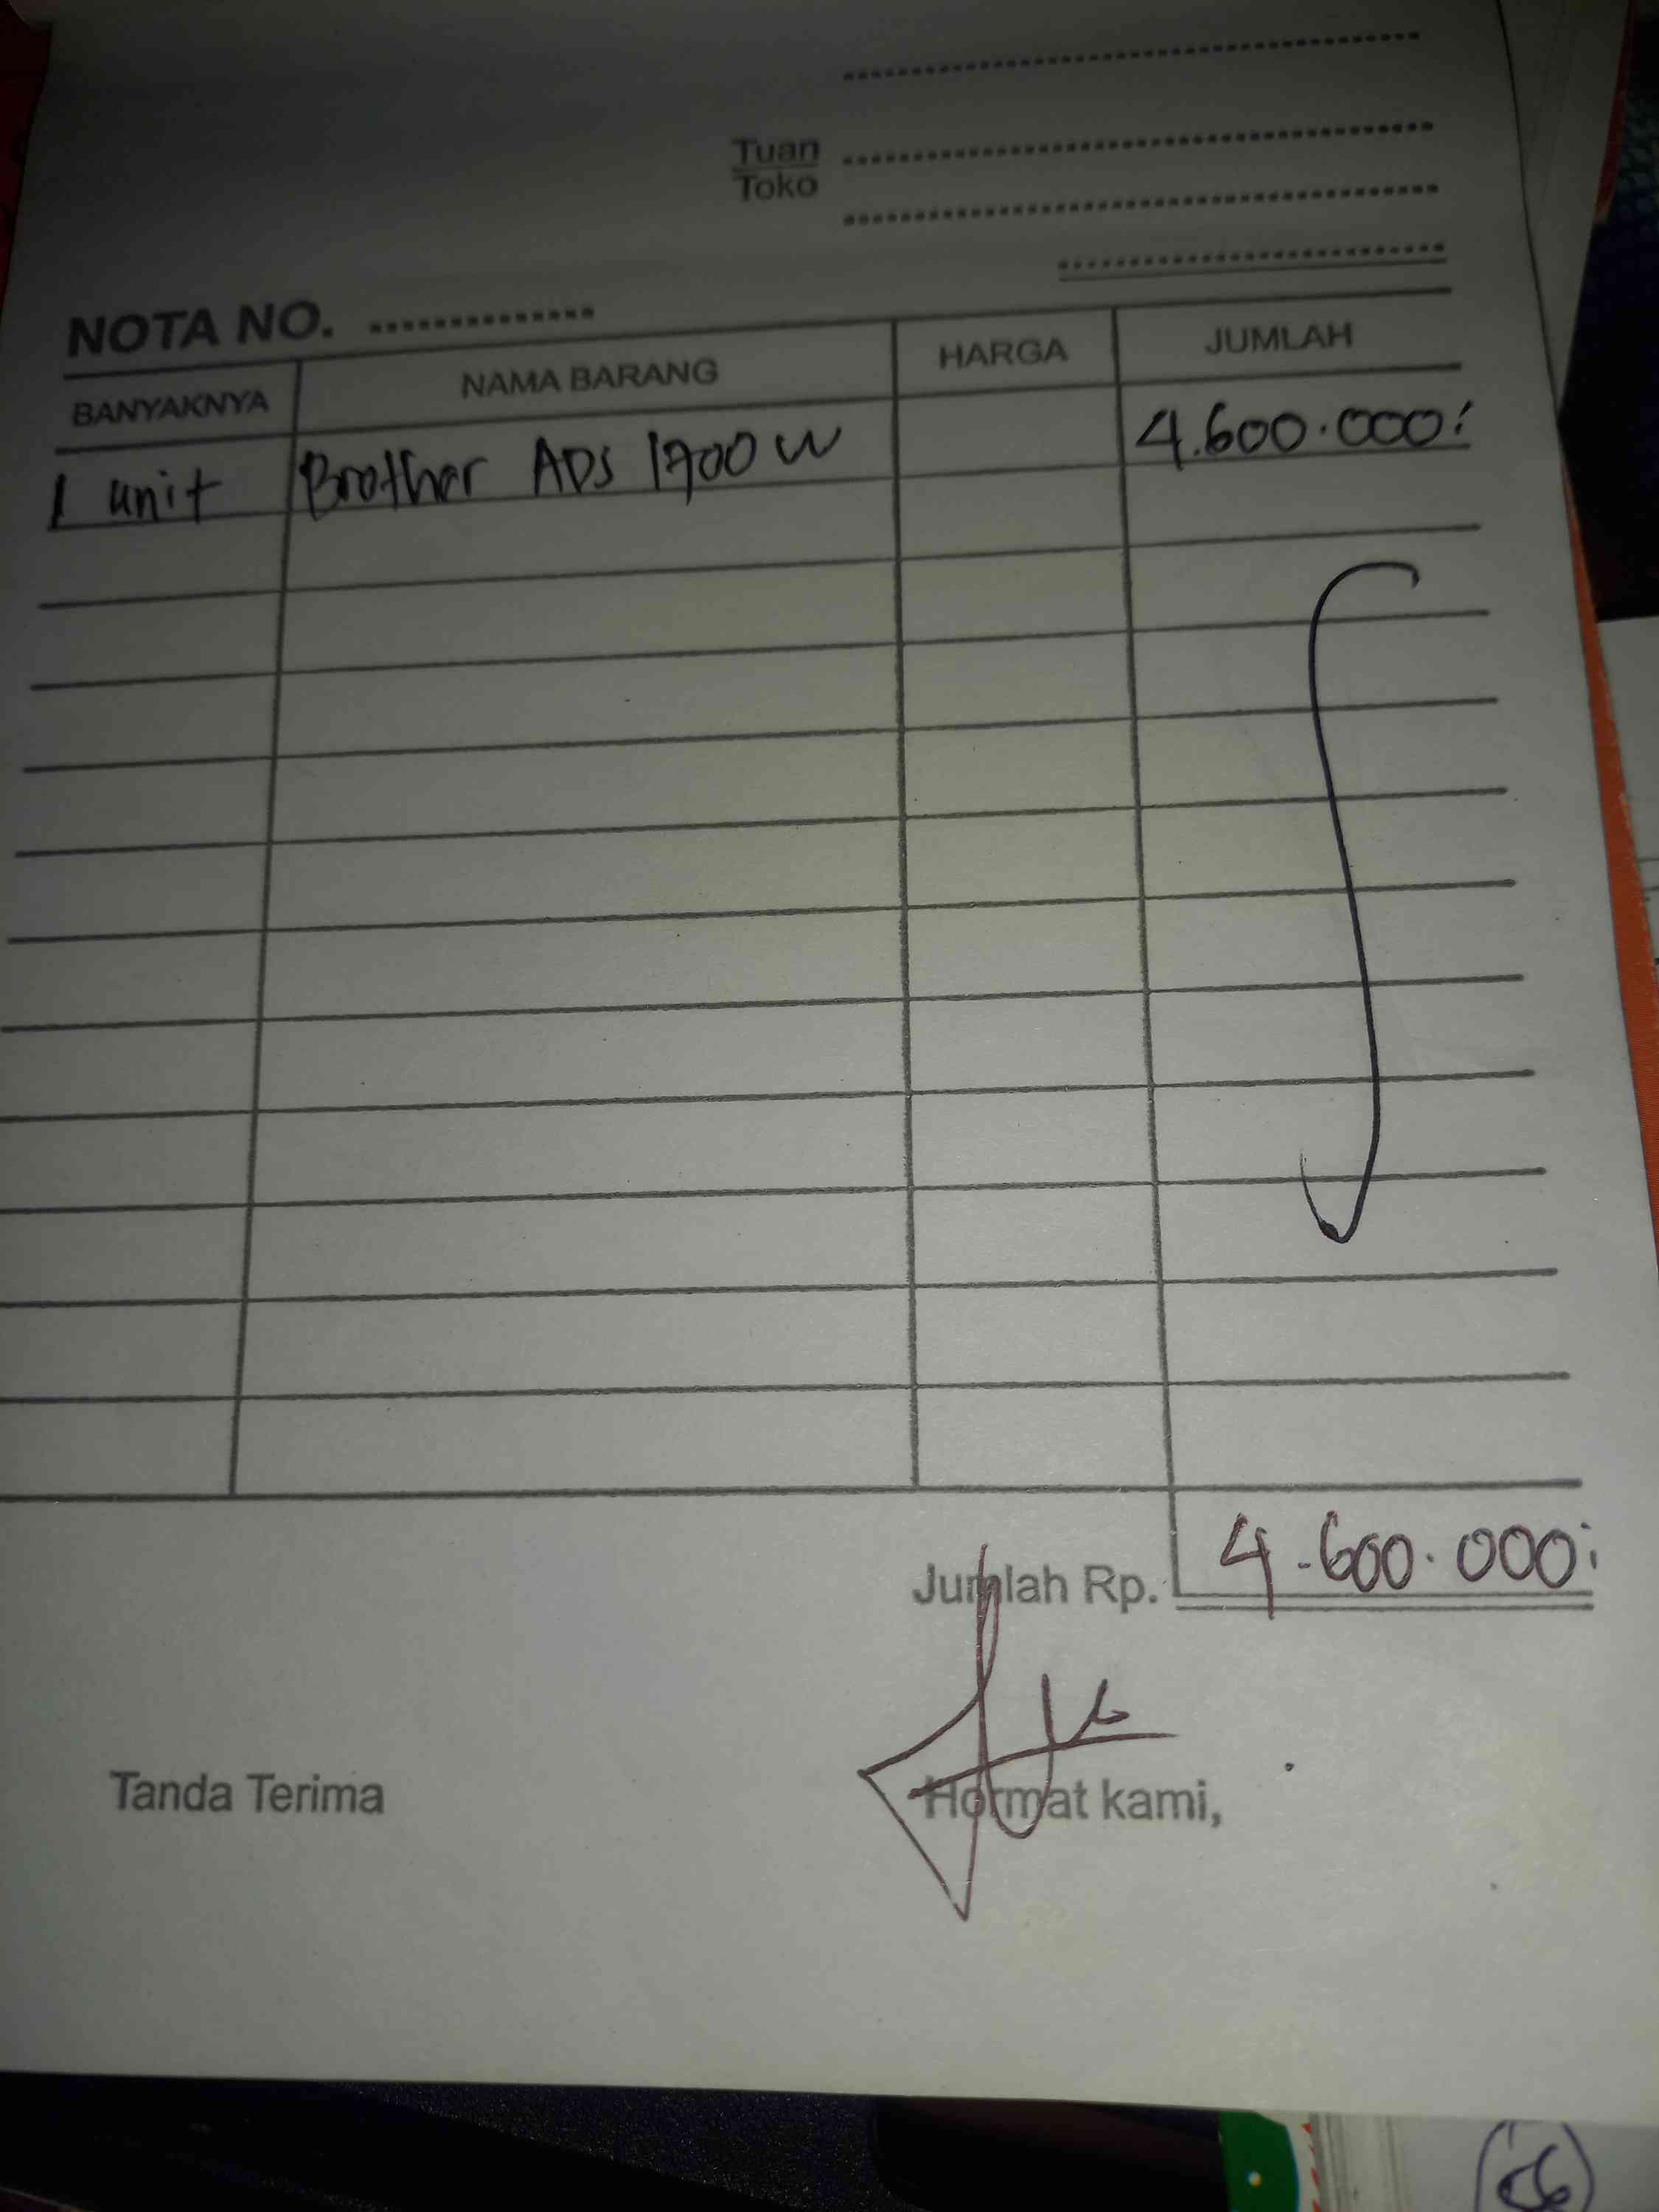 Tuan
Toko
NOTA NO.
BANYAKNYA NAMA BARANG HARGA JUMLAH
1 unit Brother ADS 1700 W 4.600.000
Jumlah Rp. 4.600.000
Tanda Terima Hormat kami,